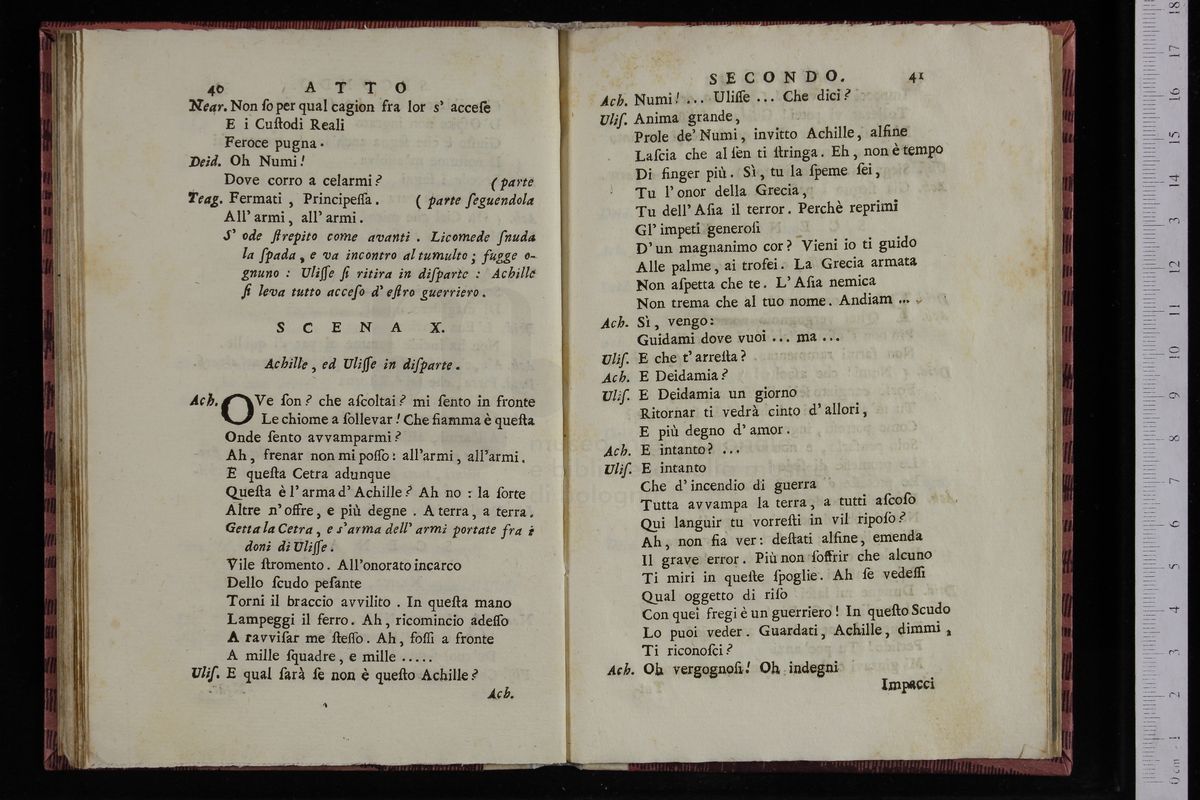 40 A T T O
Near. Non ſo per qual cagion fra lor s' acceſe
E i Cuſtodi Reali
Feroce pugna.
Deid. Oh Numi!
Dove corro a celarmi? (parte
Teag. Fermati , Principeſſa. ( parte ſeguendola
All' armi, all' armi.
S' ode ſtrepito come avanti . Licomede ſnuda
la ſpada, e va incontro al tumulto; fugge o-
gnuno : Uliſſe ſi ritira in diſparte : Achille
ſi leva tutto acceſo d' eſtro guerriero.
S C E N A X.
Achille, ed Uliſſe in diſparte.
Ach. OVe ſon? che aſcoltai? mi ſento in fronte
Le chiome a ſollevar! Che fiamma è queſta
Onde ſento avvamparmi?
Ah, frenar non mi poſſo: all'armi, all'armi.
E queſta Cetra adunque
Queſta è l' arma d' Achille? Ah no : la ſorte
Altre n' offre, e più degne . A terra, a terra.
Getta la Cetra, e s'arma dell' armi portate fra i
doni di Uliſſe.
Vile ſtromento. All'onorato incarco
Dello ſcudo peſante
Torni il braccio avvilito . In queſta mano
Lampeggi il ferro. Ah, ricomincio adeſſo
A ravviſar me ſteſſo. Ah, foſſi a fronte
A mille ſquadre, e mille .....
Uliſ. E qual ſarà ſe non è queſto Achille?
Ach.
SECONDO. 41
Ach. Numi! ... Uliſſe ... Che dici?
Uliſ. Anima grande,
Prole de' Numi, invitto Achille, alfine
Laſcia che al ſen ti ſtringa. Eh, non è tempo
Di finger più. Sì, tu la ſpeme ſei,
Tu l' onor della Grecia,
Tu dell' Aſia il terror. Perchè reprimi
Gl' impeti generoſi
D' un magnanimo cor? Vieni io ti guido
Alle palme, ai trofei. La Grecia armata
Non aſpetta che te. L' Aſia nemica
Non trema che al tuo nome. Andiam ...
Ach. Sì, vengo:
Guidami dove vuoi ... ma ...
Uliſ. E che t' arreſta?
Ach. E Deidamia?
Uliſ. E Deidamia un giorno
Ritornar ti vedrà cinto d' allori,
E più degno d' amor.
Ach. E intanto? ...
Uliſ. E intanto
Che d' incendio di guerra
Tutta avvampa la terra, a tutti aſcoſo
Qui languir tu vorreſti in vil ripoſo?
Ah, non fia ver: deſtati alfine, emenda
Il grave error. Più non ſoffrir che alcuno
Ti miri in queſte ſpoglie. Ah ſe vedeſſi
Qual oggetto di riſo
Con quei fregi è un guerriero! In queſto Scudo
Lo puoi veder. Guardati, Achille, dimmi,
Ti riconoſci?
Ach. Oh vergognoſi! Oh indegni
Impacci